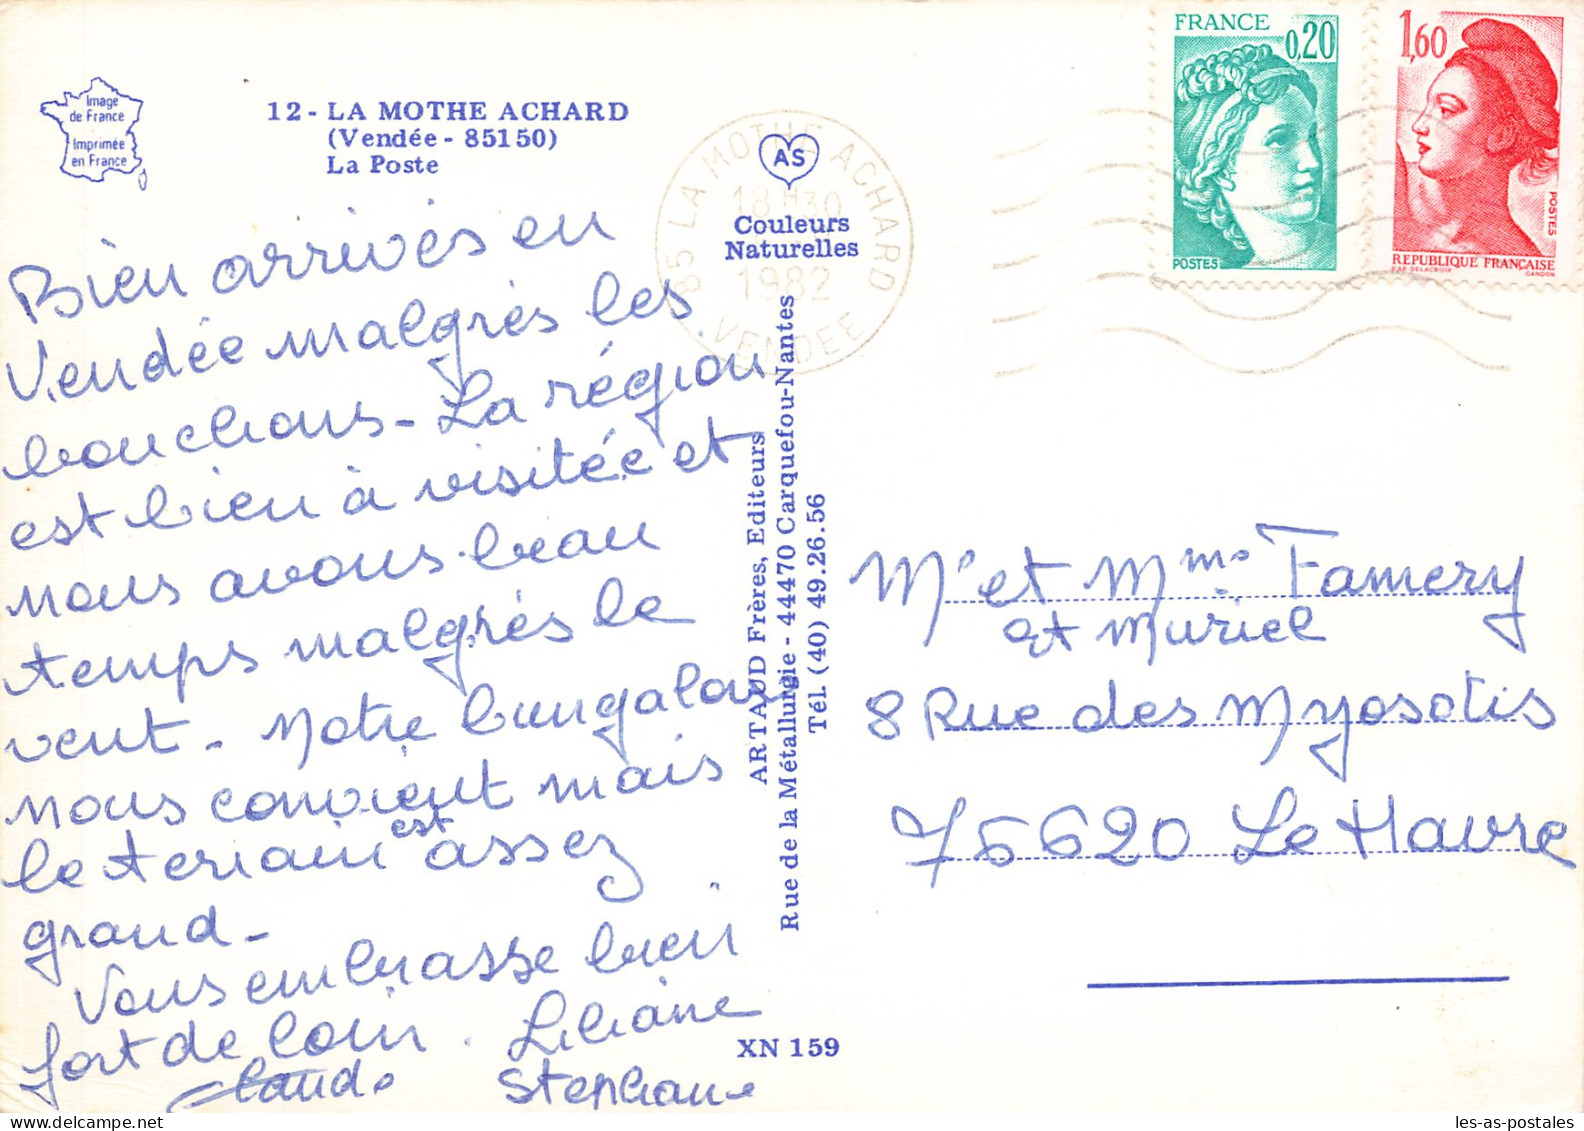 Image
de France
Imprimée
en France
12 - LA MOTHE ACHARD
(Vendée - 85150)
La Poste
Bien arrivés en
Vendée malgrès les
bouchons - La région
est bien à visitée et
nous avons beau
temps malgrès le
vent - Notre bungalow
nous convient mais
le terrain est assez
grand -
Vous embrasse bien
fort de loin. Liliane
Claude Stephane
85 LA MOTHE ACHARD
18 H 30
1982
VENDEE
AS
Couleurs
Naturelles
ARTAUD Frères, Editeurs
Rue de la Métallurgie - 44470 Carquefou-Nantes
Tél. (40) 49.26.56
XN 159
FRANCE
0,20
POSTES
1,60
POSTES
REPUBLIQUE FRANÇAISE
D'AP. DELACROIX
GANDON
Mr et Mme Famery
et Muriel
8 Rue des Myosotis
76620 Le Havre
les-as-postales